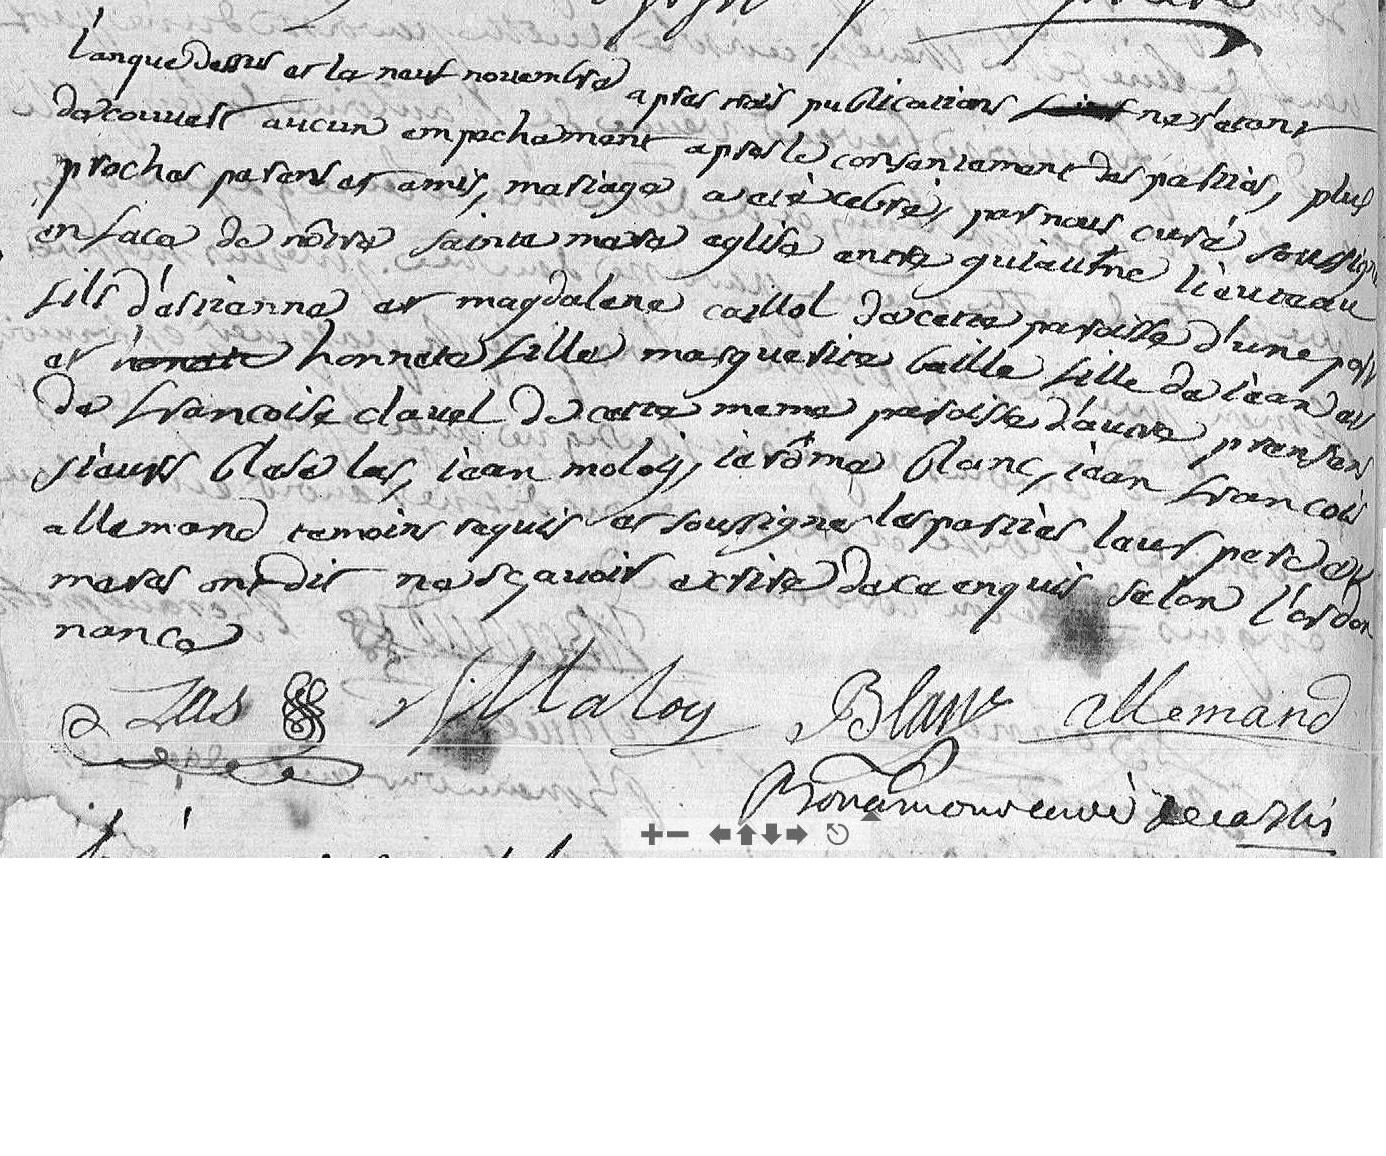 l'anque dessus et la neuf novembre apres trois publications ne s'etant
decouvert aucun empechement apres le consentement des parties, plus
proches parens et amis, mariage a eté celebré, par nous curé soussigne
en face de nôtre sainte mere eglise entre guiaume lieutaud
fils d'estienne et magdalene caillol de cette paroisse d'une part
et honnete fille marguerite baille fille de iean et
de francoise clauel de cette meme paroisse d'autre presens
sieurs blase las, iean moloy, ierôme blanc, iean francois
allemand temoins requis et soussignes les parties leurs pere et
meres ont dit ne sçauoir escrire de ce enquis selon l'ordon
nance
Las Maloy Blanc allemand
curé decassis